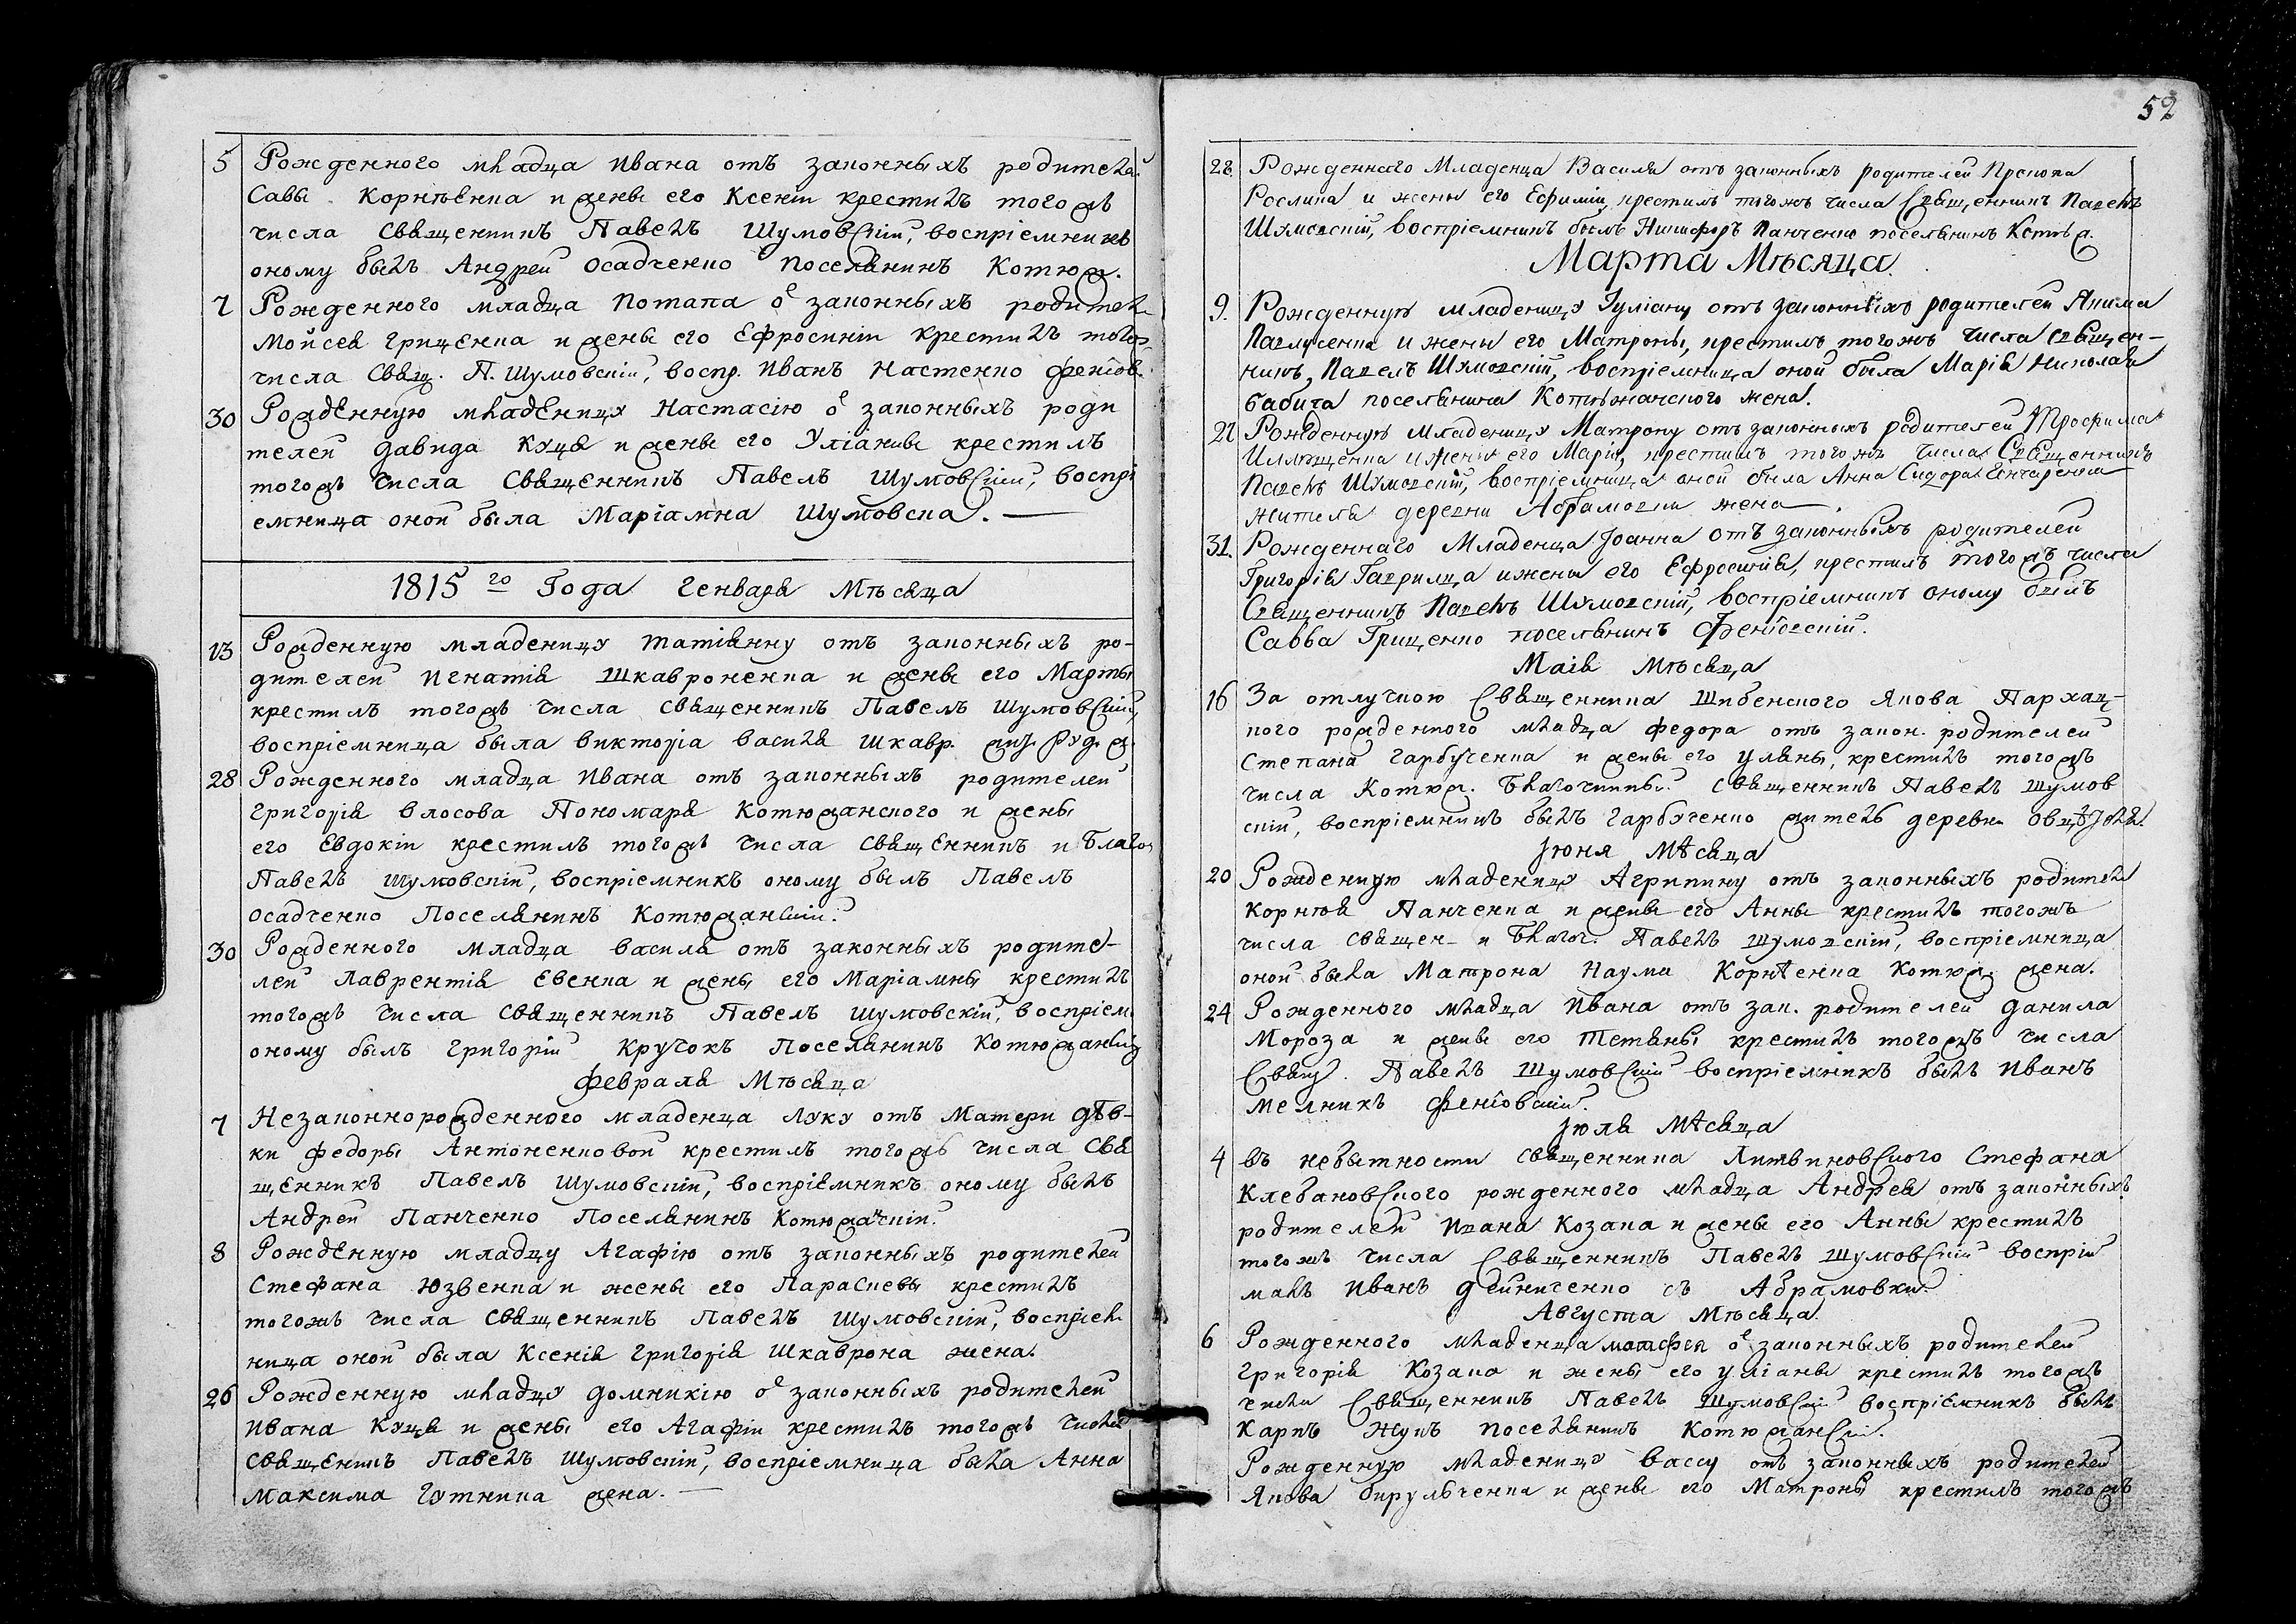 52
5 Рожденного младца Ивана отъ законныхъ родителей
Савы Корнѣенка и жены его Ксеніи крестилъ тогожъ
числа Священникъ Павелъ Шумовскій, воспріемникъ
оному былъ Андрей Осадченко поселянинъ Котюж.
7 Рожденного младца Потапа о законныхъ родител
Мойсея Грищенка и жены его Ефросиніи крестилъ тогож
числа Свящ. П. Шумовскій, воспр. Иванъ Настенко Фенюв.
30 Рожденную младеницу Настасію о законныхъ роди
телей Давида Куця и жены его Уліаны крестилъ
тогожъ числа Священникъ Павелъ Шумовскій, воспрі
емница оной была Маріамна Шумовска.
1815го Года Генваря Мѣсяца
13 Рожденную младеницу Татіанну отъ законныхъ ро-
дителей Игнатія Шкавроненка и жены его Марты
крестилъ тогожъ числа Священникъ Павелъ Шумовскій,
воспріемница была Викторіа Василя Шкавр.
28 Рожденного младца Ивана отъ законныхъ родителей
Григорія Власова Пономаря Котюжанского и жены
его Евдокіи крестилъ тогожъ числа Священникъ и Благоч
Павелъ Шумовскій, воспріемникъ оному былъ Павелъ
Осадченко Поселянинъ Котюжанскій.
30 Рожденного младца Василя отъ законныхъ родите-
лей Лаврентія Евенка и жены его Маріамны крестилъ
тогожъ числа Священникъ Павелъ Шумовскій, воспріем.
оному былъ Григорій Кручокъ Поселянинъ Котюжанскій
Февраля Мѣсяца
7 Незаконнорожденного младенца Луку отъ Матери дѣв-
ки Федоры Антоненковой крестилъ тогожъ числа Свя
щенникъ Павелъ Шумовскій, воспріемникъ оному былъ
Андрей Панченко Поселянинъ Котюжанскій.
8 Рожденную младцу Агафію отъ законныхъ родителей
Стефана Юзвенка и жены его Параскевы крестилъ
тогожъ числа Священникъ Павелъ Шумовскій, воспріем
ница оной была Ксенія Григорія Шкаврона жена.
26 Рожденную младцу Домникію о законныхъ родителей
Ивана Куця и жены его Агафіи крестилъ тогожъ числа
Священикъ Павелъ Шумовскій, воспріемница была Анна
Максима Гутника жена.
28 Рожденнаго Младенца Василя отъ законныхъ родителей Прокопа
Рослика и жены его Ефиміи, крестилъ тогожъ числа Священникъ Павелъ
Шумовскій, воспріемникъ былъ Никифоръ Панченко поселянинъ Котюж.
Марта Мѣсяца.
9. Рожденную Младеницу Іуліану отъ законныхъ родителей Якима
Павлусенка и жены его Матроны, крестилъ тогожъ числа Священ-
никъ, Павелъ Шумовскій, воспріемница оной была Марія Николая
Бабича поселянина Котюжанского жена.
21 Рожденную Младеницу Матрону отъ законныхъ родителей Трофима
Илляшенка и жены его Маріи, крестилъ тогожъ числа Священникъ
Павелъ Шумовскій, воспріемница оной была Анна Сидора Гончаренка
жителя деревни Абрамовки жена.
31. Рожденнаго Младенца Іоанна отъ законныхъ родителей
Григорія Гаврилца и жены его Ефросиніи, крестилъ тогожъ числа
Священникъ Павелъ Шумовскій, воспріемникъ оному былъ
Савва Грищенко поселянинъ Фенювскій.
Маія Мѣсяца
16 За отлучкою Священника Шибенского Якова Пархац-
кого рожденного младца Федора отъ закон. родителей
Степана Гарбученка и жены его Уляны, крестилъ тогожъ
числа Котюж. Благочинный Священникъ Павелъ Шумов
скій, воспріемникъ былъ Гарбученко житель деревни
Іюня Мѣсяца
20 Рожденную младеницу Агрипину отъ законныхъ родител
Корнѣя Панченка и жены его Анны крестилъ тогожъ
числа Священ- и Благоч. Павелъ Шумовскій, воспріемница
оной была Матрона Наума Корнѣенка Котюж. жена.
24 Рожденного младца Ивана отъ зак. родителей Данила
Мороза и жены его Тетяны крестилъ тогожъ числа
Свящ. Павелъ Шумовскій воспріемникъ былъ Иванъ
Мелникъ Фенювскій.
Іюля Мѣсяца
4 Въ небытности Священника Литвиновского Стефана
Клебановского рожденного младца Андрея отъ законныхъ
родителей Ивана Козака и жены его Анны крестилъ
тогожъ числа Священникъ Павелъ Шумовскій воспрій
малъ Иванъ Дейниченко съ Абрамовки.
Августа Мѣсяца.
6 Рожденного младенца Матфея о законныхъ родителей
Григорія Козака и жены его Уліаны крестилъ тогожъ
числа Священникъ Павелъ Шумовскій воспріемникъ былъ
Карпъ Жукъ поселянинъ Котюжанскій.
Рожденную младеницу Вассу отъ законныхъ родителей
Якова Бирульченка и жены его Матроны крестилъ тогожъ